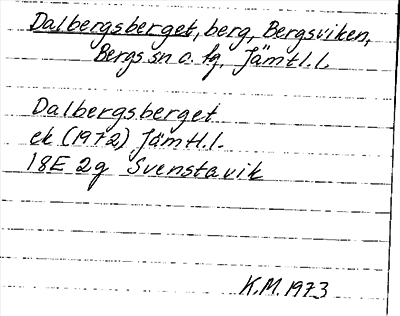 Dalbergsberget, berg, Bergsviken,
Bergs sn o. tg, Jämtl.l.
Dalbergsberget
ek (1972) Jämtl.l.
18E 2g Svenstavik
K.M. 1973